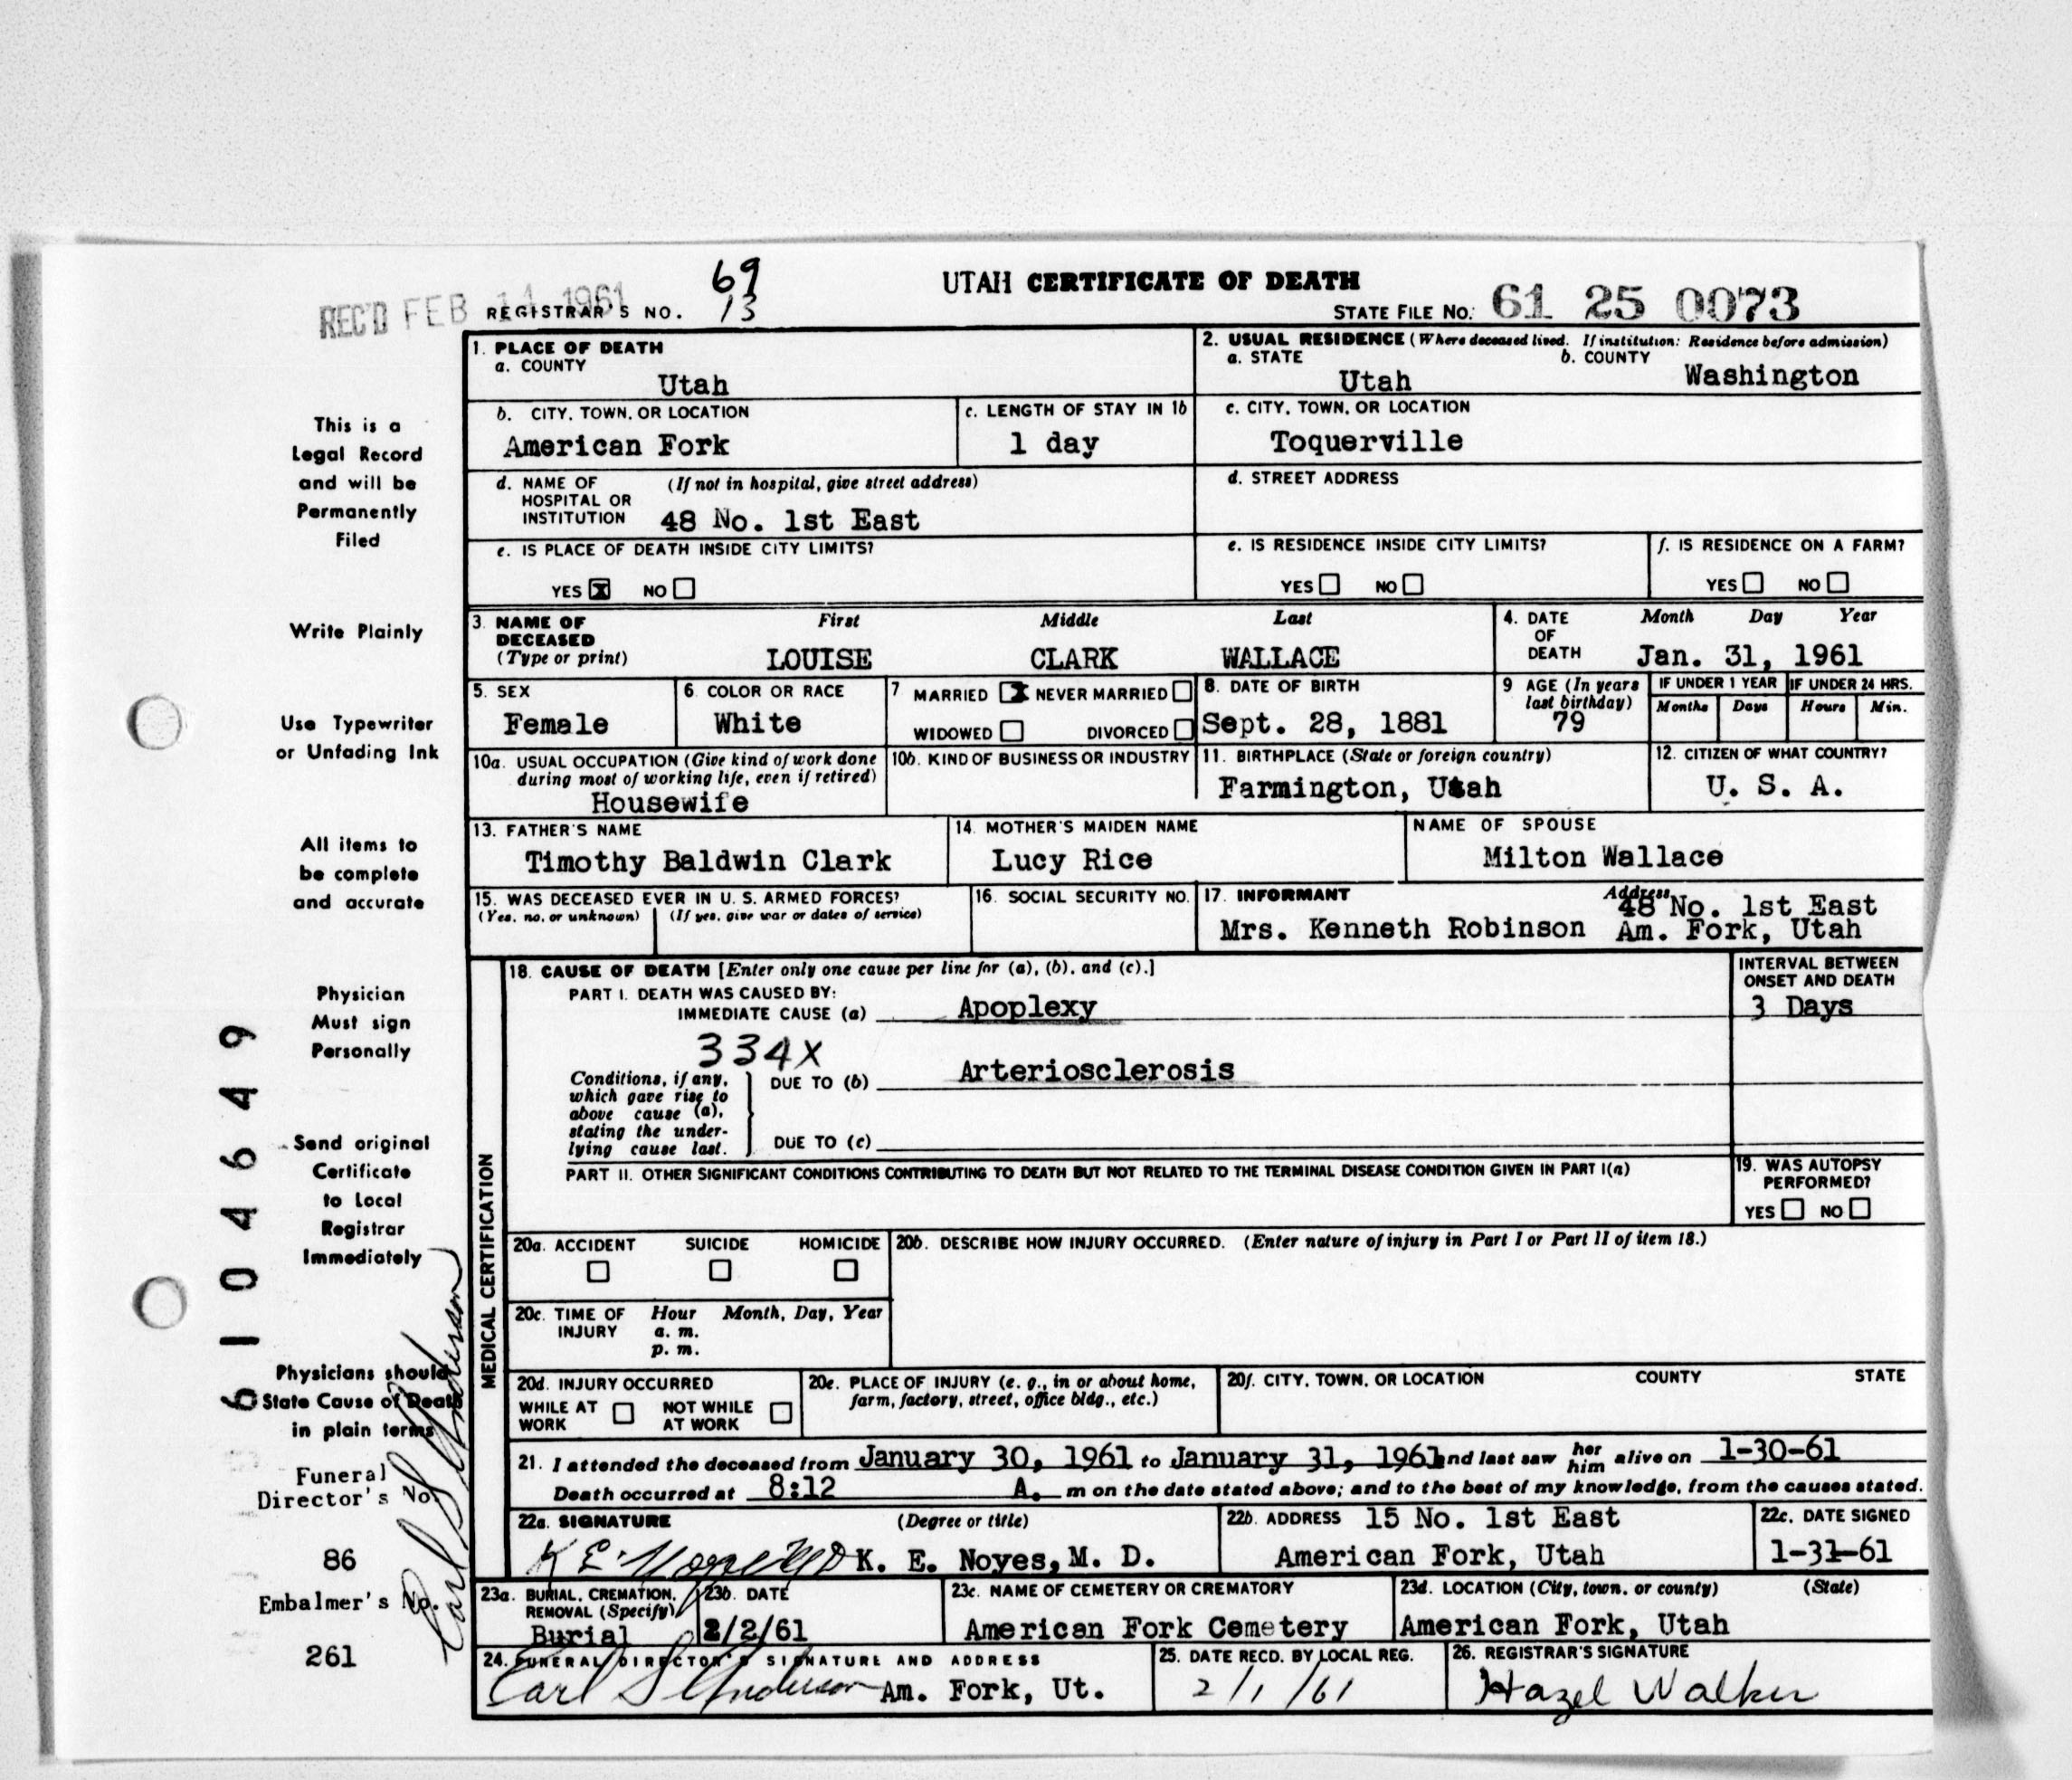 69
UTAH CERTIFICATE OF DEATH
REC'D FEB 14 1961 REGISTRAR'S NO. 13 STATE FILE NO. 61 25 0073
1. PLACE OF DEATH
a. COUNTY
Utah
2. USUAL RESIDENCE (Where deceased lived. If institution: Residence before admission)
a. STATE b. COUNTY
Utah Washington
b. CITY, TOWN, OR LOCATION
American Fork
c. LENGTH OF STAY IN 1b
1 day
c. CITY, TOWN, OR LOCATION
Toquerville
d. NAME OF (If not in hospital, give street address)
HOSPITAL OR
INSTITUTION 48 No. 1st East
d. STREET ADDRESS
e. IS PLACE OF DEATH INSIDE CITY LIMITS?
YES X NO
e. IS RESIDENCE INSIDE CITY LIMITS?
YES NO
f. IS RESIDENCE ON A FARM?
YES NO
3. NAME OF First Middle Last
DECEASED
(Type or print) LOUISE CLARK WALLACE
4. DATE Month Day Year
OF
DEATH Jan. 31, 1961
5. SEX
Female
6. COLOR OR RACE
White
7 MARRIED X NEVER MARRIED
WIDOWED DIVORCED
8. DATE OF BIRTH
Sept. 28, 1881
9 AGE (In years
last birthday)
79
IF UNDER 1 YEAR IF UNDER 24 HRS.
Months Days Hours Min.
10a. USUAL OCCUPATION (Give kind of work done
during most of working life, even if retired)
Housewife
10b. KIND OF BUSINESS OR INDUSTRY
11. BIRTHPLACE (State or foreign country)
Farmington, Utah
12. CITIZEN OF WHAT COUNTRY?
U. S. A.
13. FATHER'S NAME
Timothy Baldwin Clark
14. MOTHER'S MAIDEN NAME
Lucy Rice
NAME OF SPOUSE
Milton Wallace
15. WAS DECEASED EVER IN U. S. ARMED FORCES?
(Yes, no, or unknown) (If yes, give war or dates of service)
16. SOCIAL SECURITY NO.
17. INFORMANT Address
48 No. 1st East
Mrs. Kenneth Robinson Am. Fork, Utah
MEDICAL CERTIFICATION
18. CAUSE OF DEATH [Enter only one cause per line for (a), (b), and (c).]
PART I. DEATH WAS CAUSED BY:
IMMEDIATE CAUSE (a) Apoplexy
INTERVAL BETWEEN
ONSET AND DEATH
3 Days
334X
Conditions, if any,
which gave rise to
above cause (a),
stating the under-
lying cause last.
DUE TO (b) Arteriosclerosis
DUE TO (c)
PART II. OTHER SIGNIFICANT CONDITIONS CONTRIBUTING TO DEATH BUT NOT RELATED TO THE TERMINAL DISEASE CONDITION GIVEN IN PART I(a)
19. WAS AUTOPSY
PERFORMED?
YES NO
20a. ACCIDENT SUICIDE HOMICIDE
20b. DESCRIBE HOW INJURY OCCURRED. (Enter nature of injury in Part I or Part II of item 18.)
20c. TIME OF Hour Month, Day, Year
INJURY a. m.
p. m.
20d. INJURY OCCURRED
WHILE AT NOT WHILE
WORK AT WORK
20e. PLACE OF INJURY (e. g., in or about home,
farm, factory, street, office bldg., etc.)
20f. CITY, TOWN, OR LOCATION COUNTY STATE
21. I attended the deceased from January 30, 1961 to January 31, 1961 and last saw her him alive on 1-30-61
Death occurred at 8:12 A. m on the date stated above; and to the best of my knowledge, from the causes stated.
22a. SIGNATURE (Degree or title)
K E Noyes MD K. E. Noyes, M. D.
22b. ADDRESS 15 No. 1st East
American Fork, Utah
22c. DATE SIGNED
1-31-61
23a. BURIAL, CREMATION,
REMOVAL (Specify)
Burial
23b. DATE
2/2/61
23c. NAME OF CEMETERY OR CREMATORY
American Fork Cemetery
23d. LOCATION (City, town, or county) (State)
American Fork, Utah
24. FUNERAL DIRECTOR'S SIGNATURE AND ADDRESS
Carl S Anderson Am. Fork, Ut.
25. DATE RECD. BY LOCAL REG.
2/1/61
26. REGISTRAR'S SIGNATURE
Hazel Walker
This is a
Legal Record
and will be
Permanently
Filed
Write Plainly
Use Typewriter
or Unfading Ink
All items to
be complete
and accurate
Physician
Must sign
Personally
Send original
Certificate
to Local
Registrar
Immediately
Physicians should
State Cause of Death
in plain terms
Funeral
Director's No.
86
Embalmer's No.
261
Carl S Anderson
6104649